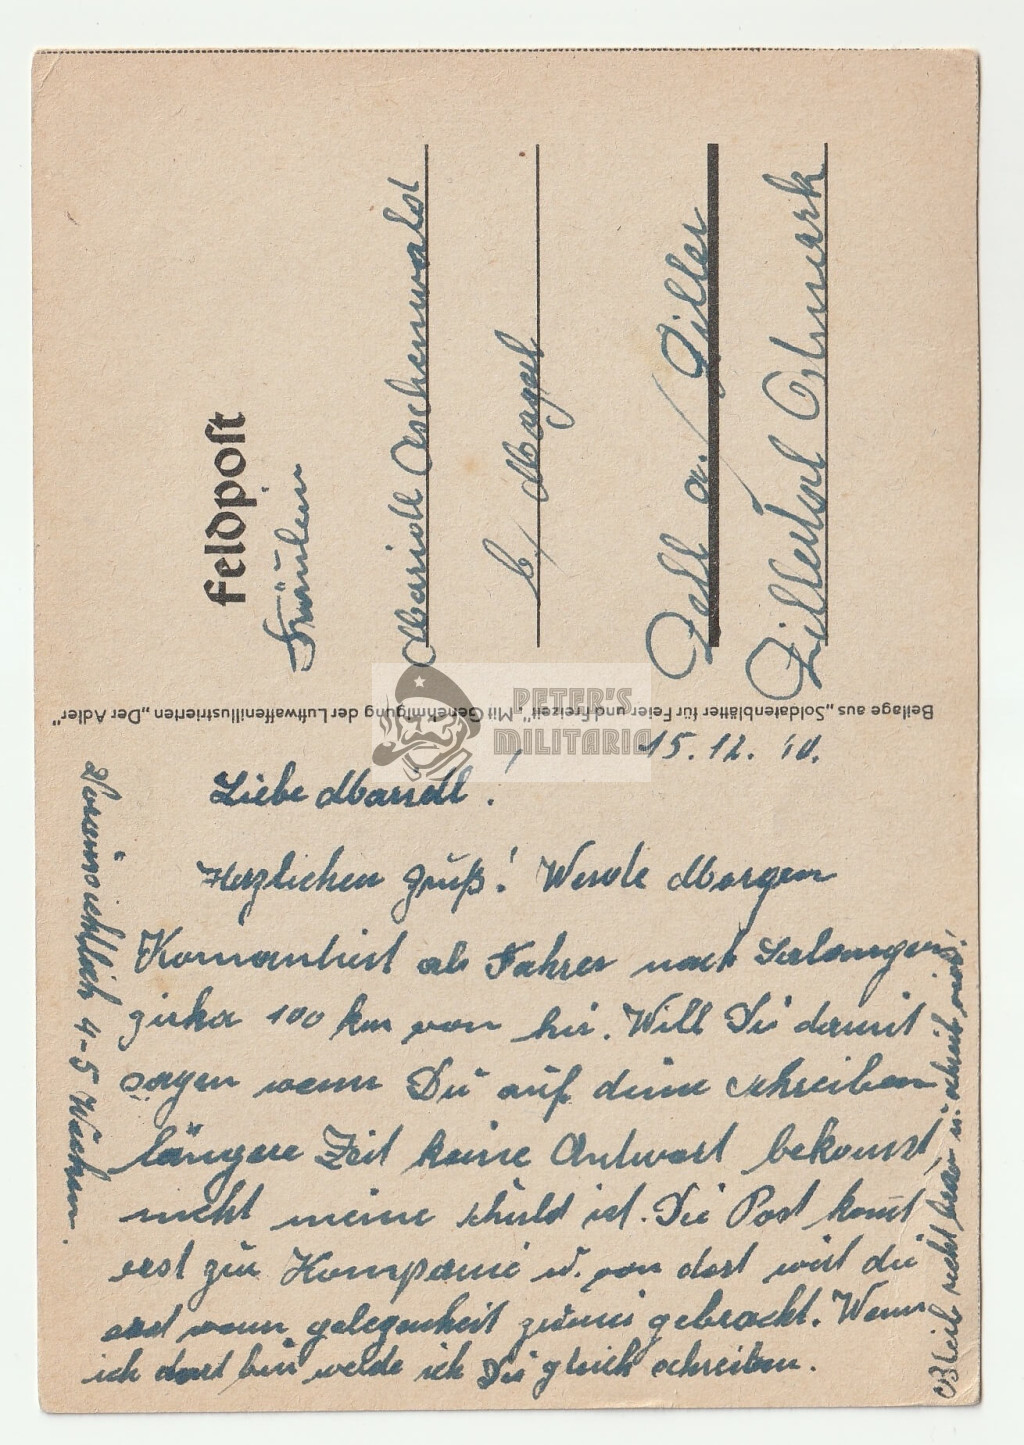 Feldpost
Fräulein
Mariedl Aschenwald
b/
Zell a./ Ziller
Zillertal Ostmark
Beilage aus „Soldatenblätter für Feier und Freizeit“. Mit Genehmigung der Luftwaffenillustrierten „Der Adler“
PETER'S
MILITARIA
15. 12. 40.
Liebe Mariedl!
Herzlichen Gruß! Werde Morgen
Komantiert als Fahrer nach
zirka 100 km von hir. Will Dir damit
sagen wenn Du auf deine schreiben
längere Zeit keine Antwort bekomst,
nicht meine schuld ist. Die Post komt
erst zur Kompanie u. von dort wird die
erst wenn gelegenheit zu mir gebracht. Wenn
ich dort bin werde ich Dir gleich schreiben.
Voraussichtlich 4-5 Wochen.
Bleib recht brav u. schreib mir!